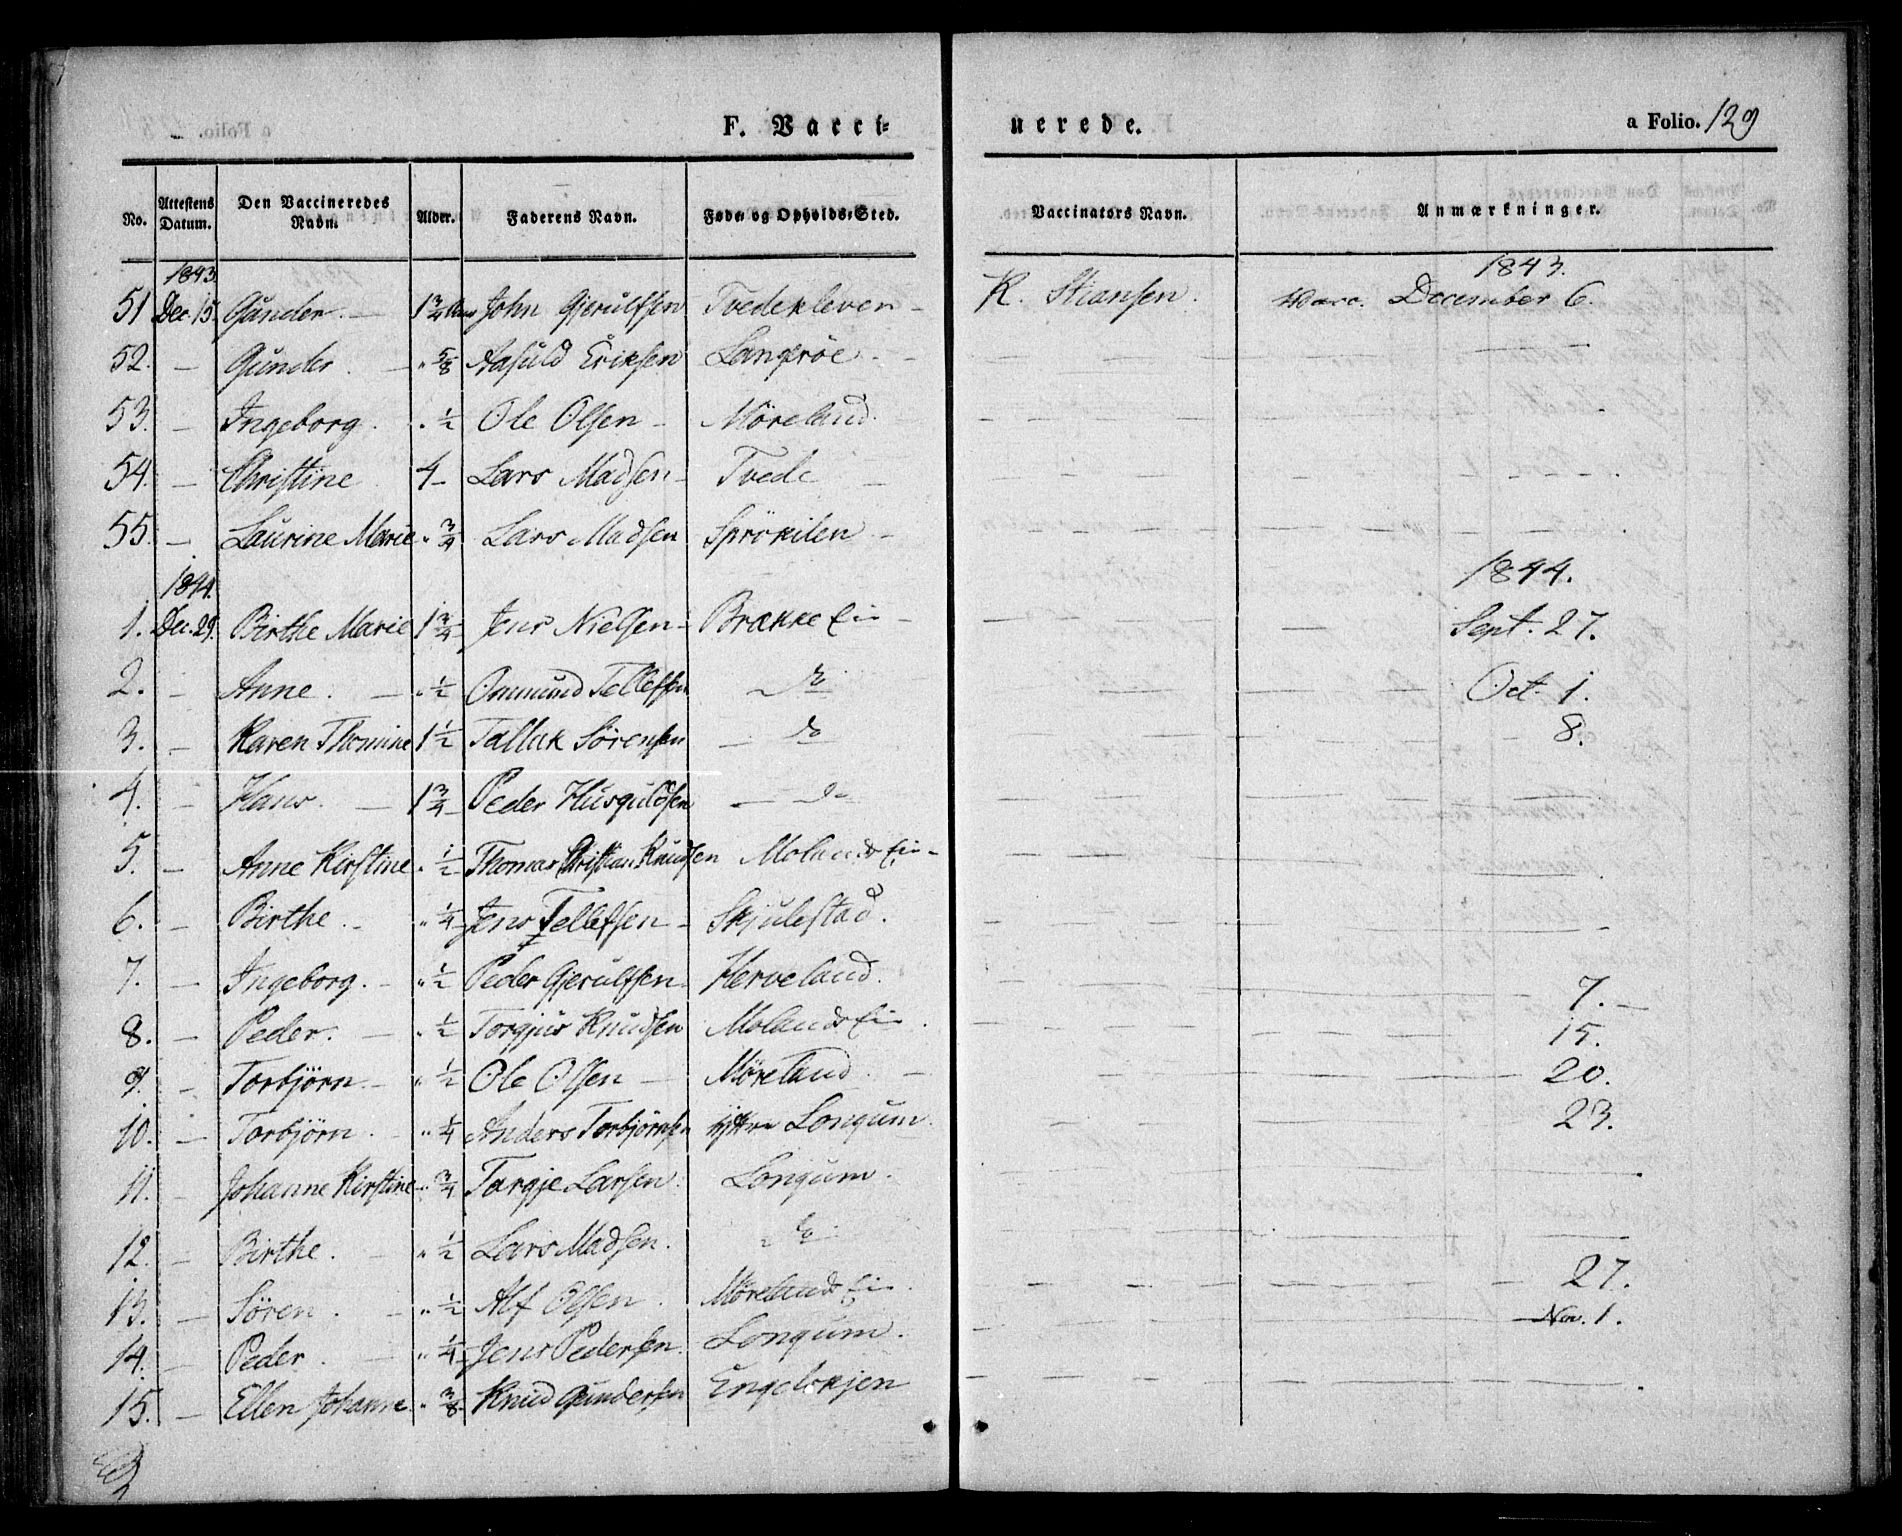 F. Vacci=
nerede.
a Folio. 129
No. Attestens Datum. Den Vaccineredes Navn. Alder. Faderens Navn. Føde- og Opholds-Sted. Vaccinators Navn. Anmærkninger.
1843. 1843.
51 Dec. 15. Gunder. — 1 3/4 Aar John Gjerulfsen Tvedekleven — K. Stiansen. Vacc. December 6.
52. — Gunder. — " 5/8 Aasuld Eriksen Langröe. — — —
53. — Ingeborg. " 1/2 Ole Olsen — Möreland. — —
54. — Christine 4 — Lars Madsen — Tvede — — —
55. — Laurine Marie " 3/4 Lars Madsen Sprökilen — — —
1844. 1844.
1. Dec. 29. Birthe Marie 1 3/4 Jens Nielsen — Brække Ei — — Sept. 27.
2. — Anne. — " 1/2 Omund Tellefsen — do — Oct. 1.
3. — Karen Thomine 1 1/2 Tallak Sörensen — do — 8.
4. — Hans. — 1 3/4 Peder Husquldsen — do — —
5. — Anne Kirstine " 1/2 Thomas Christian Knudsen Molands Ei — — —
6. — Birthe. — " 1/4 Jens Tellefsen — Skjulestad. — —
7. — Ingeborg. — " 1/2 Peder Gjerulfsen — Herveland. — 7. —
8. — Peder. — " 1/2 Torgjus Knudsen Molands Ei. — 15.
9. — Torbjörn. — " 1/2 Ole Olsen — Möreland. — — 20.
10. — Torbjörn. — " 1/4 Anders Torbjörnsen Longum. — 23.
11. — Johanne Kirstine " 3/4 Targje Larsen. Longum. — —
12. — Birthe. — " 1/2 Lars Madsen. do — —
13. — Sören. — " 1/2 Alf Olsen. Mörelands Ei. — 27.
14. — Peder. — " 1/4 Jens Pedersen. Longum. — Nov. 1.
15. — Ellen Johanne " 3/8 Knud Gundersen Engelskjen — —